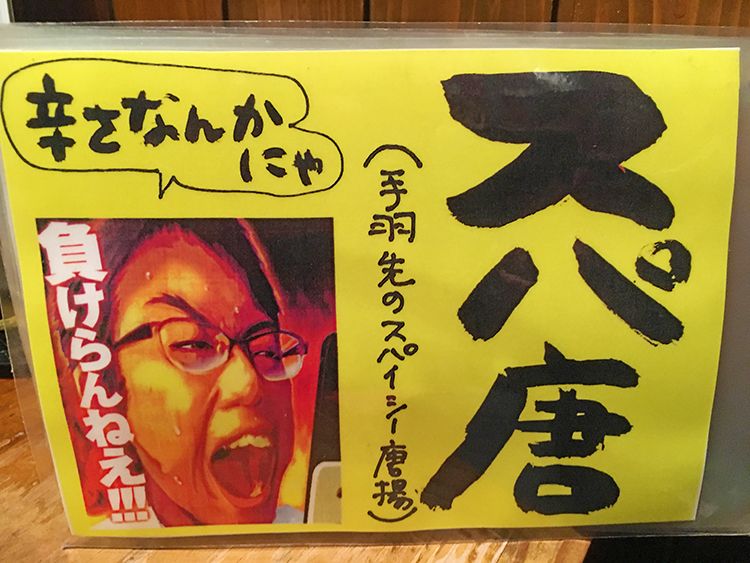 スパ唐
(手羽先のスパイシー唐揚)
辛さなんか
にゃ
負けらんねえ!!!